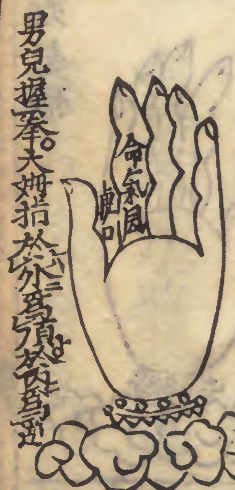 男兒握拳。大姆指於外爲順於內爲逆
命氣風
虎口